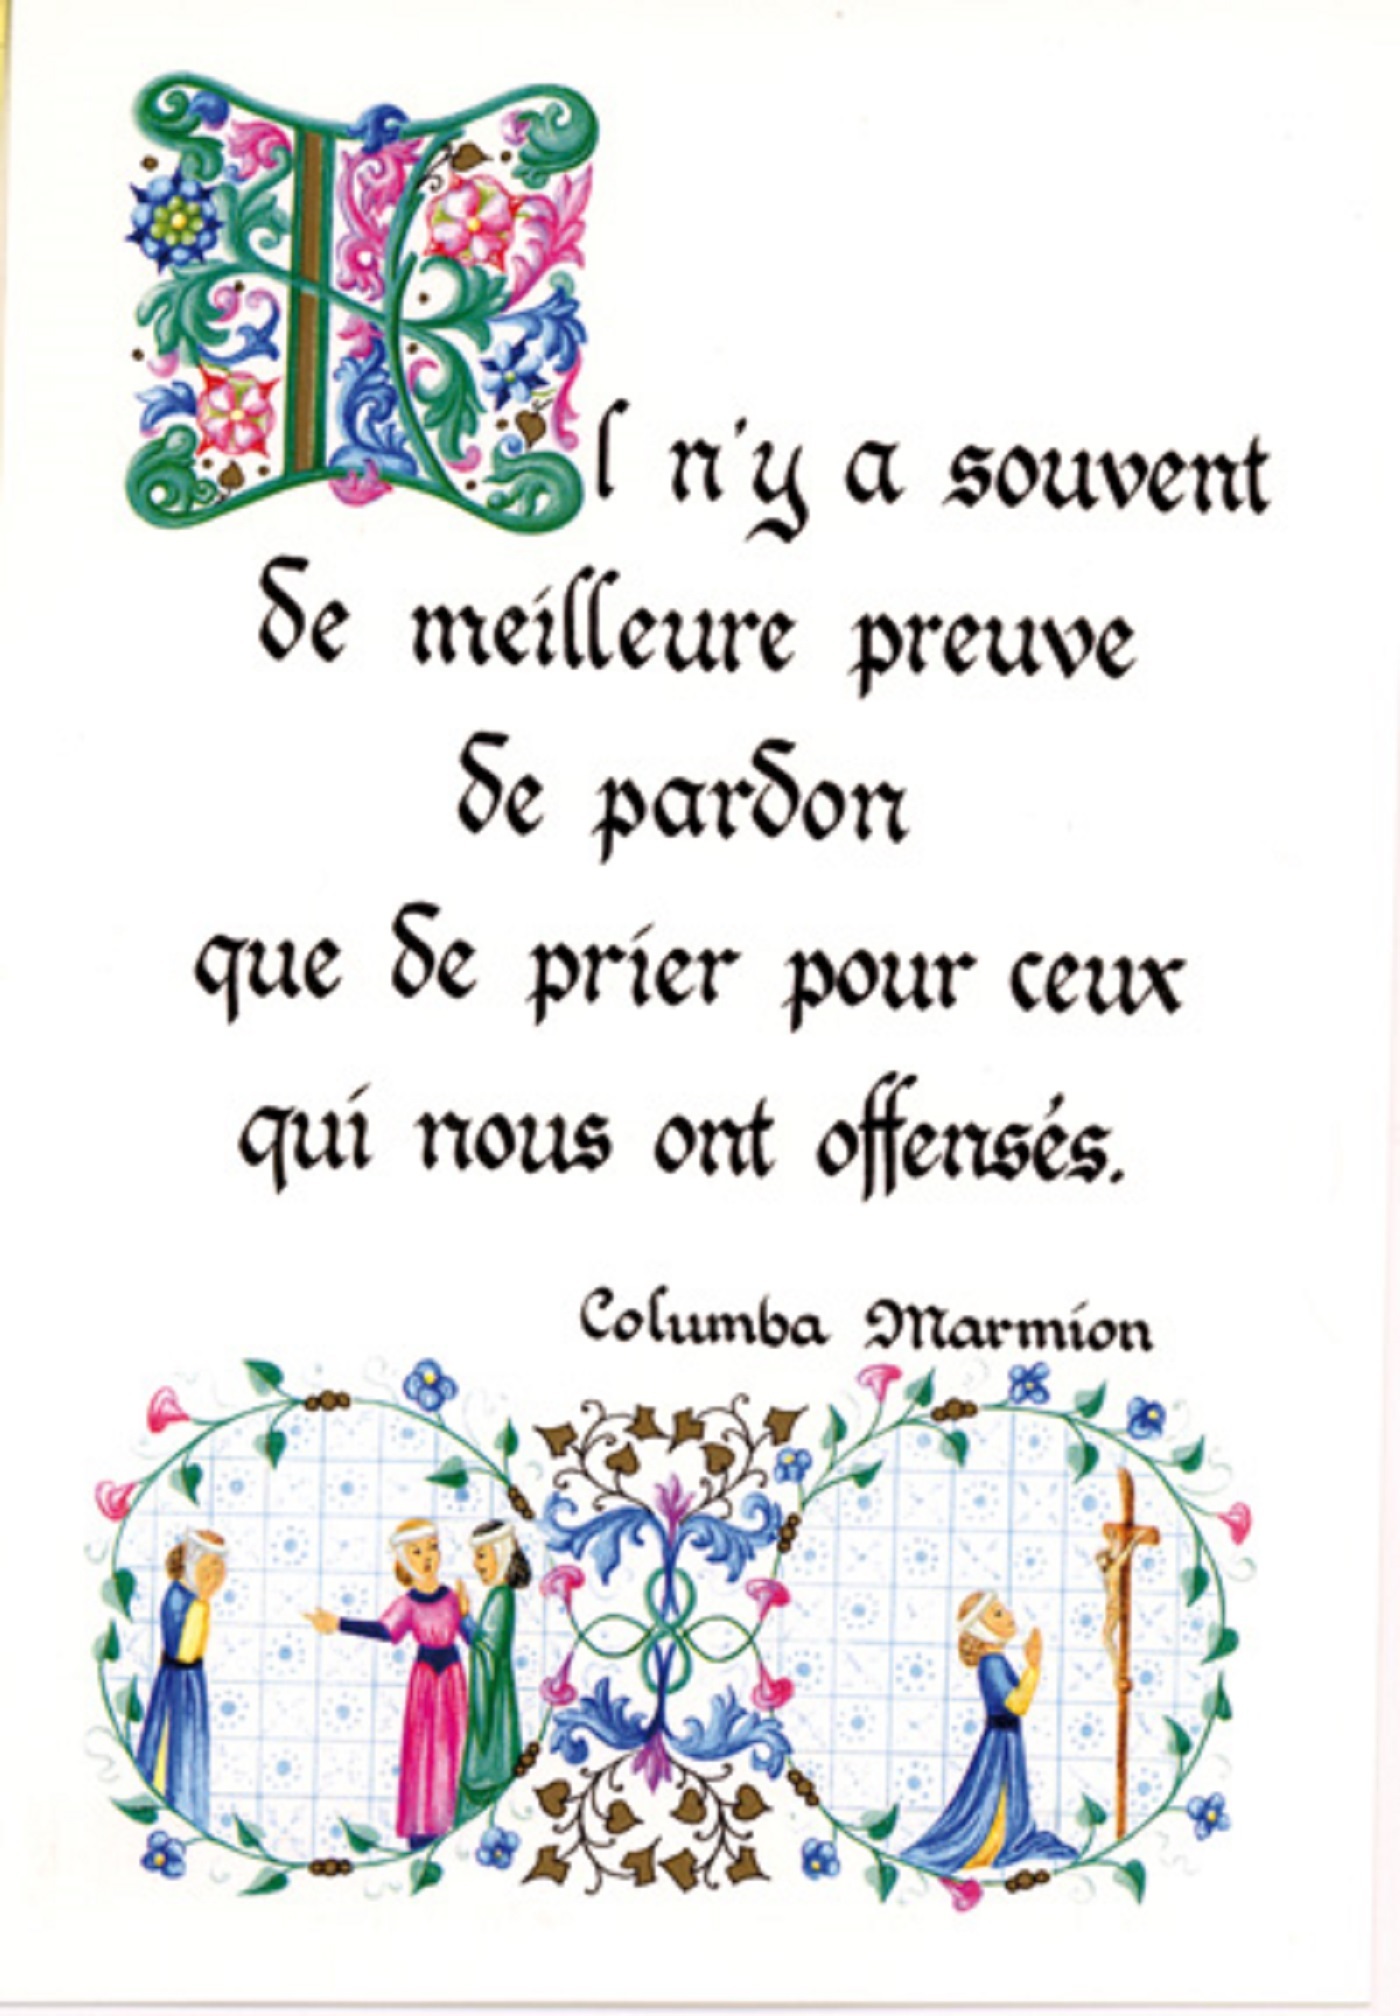 Il n'y a souvent
de meilleure preuve
de pardon
que de prier pour ceux
qui nous ont offensés.
Columba Marmion